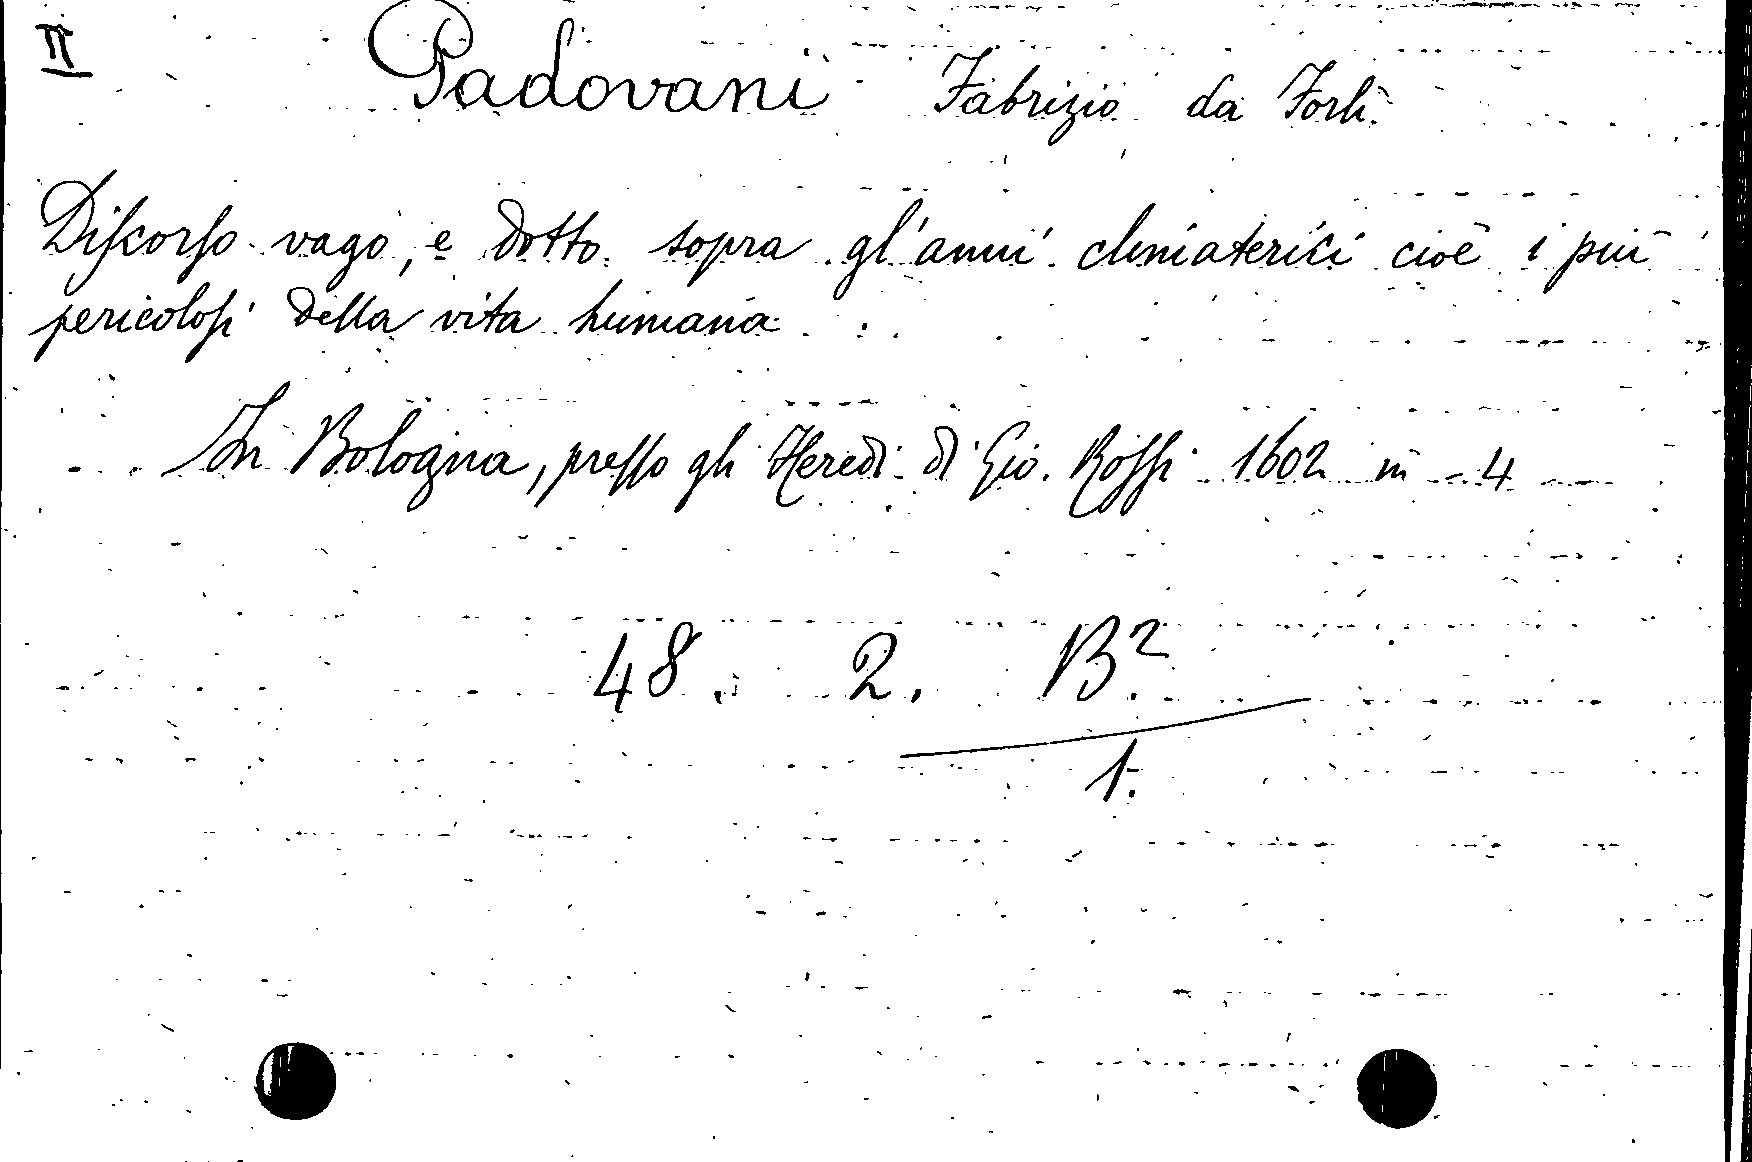 II
Padovani Fabrizio da Forlì.
Diſcorſo vago, e dotto sopra gl'anni climaterici cioè i più
pericoloſi della vita humana
In Bologna, preſſo gli Heredi di Gio. Roſſi 1602 in - 4
48. 2. B.²
1.